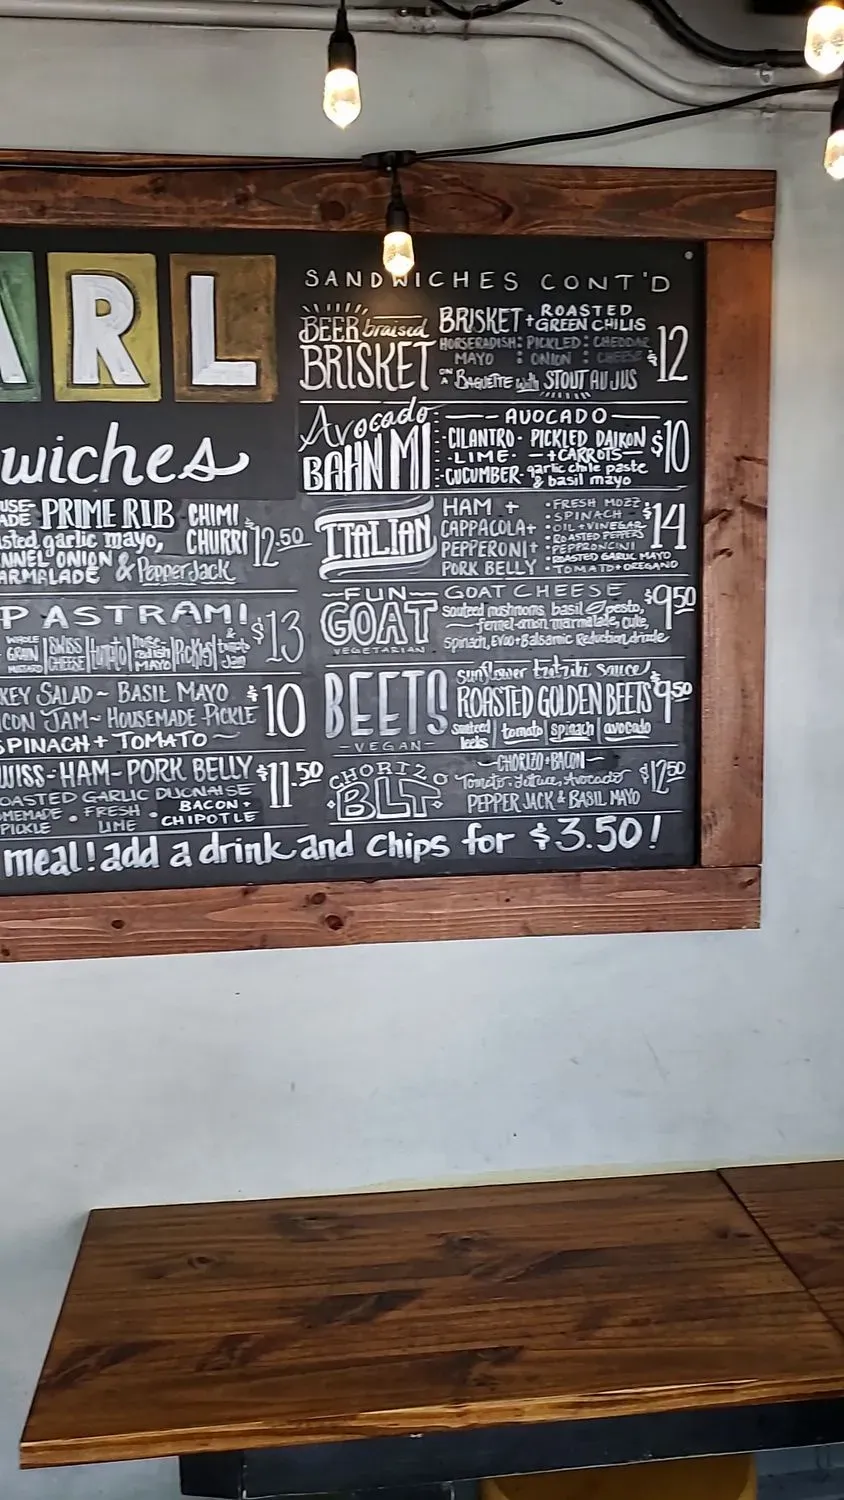 ARL
wiches
USE- PRIME RIB CHIMI
ADE CHURRI 12.50
sted garlic mayo,
NNEL ONION & Pepper Jack
ARMALADE
PASTRAMI $13
WHOLE GRAIN MUSTARD | SWISS CHEESE | tomato | horse-radish MAYO | Pickles | tomato Jam
KEY SALAD ~ BASIL MAYO $10
CON JAM ~ HOUSEMADE PICKLE
SPINACH + TOMATO
WISS - HAM - PORK BELLY $11.50
OASTED GARLIC DIJONAISE
MEMADE PICKLE • FRESH LIME • BACON + CHIPOTLE
SANDWICHES CONT'D
BEER braised BRISKET
BRISKET + ROASTED GREEN CHILIS $12
HORSERADISH MAYO : PICKLED ONION : CHEDDAR CHEESE
ON A BAGUETTE with STOUT AU JUS
Avocado BAHN MI
AVOCADO $10
CILANTRO - PICKLED DAIKON
LIME - + CARROTS
CUCUMBER - garlic chile paste & basil mayo
ITALIAN
HAM + $14
CAPPACOLA +
PEPPERONI +
PORK BELLY
• FRESH MOZZ.
• SPINACH
• OIL + VINEGAR
• ROASTED PEPPERS
• PEPPRONCINI
• ROASTED GARLIC MAYO
• TOMATO + OREGANO
FUN GOAT VEGETARIAN
GOAT CHEESE $9.50
sauteed mushrooms, basil pesto,
fennel-onion marmalade, cuke,
Spinach, EVOO + Balsamic Reduction drizzle
BEETS - VEGAN -
sunflower tzitziki sauce
ROASTED GOLDEN BEETS $9.50
sauteed leeks | tomato | spinach | avocado
CHORIZO BLT
CHORIZO + BACON $12.50
Tomato, Lettuce, Avocado
PEPPER JACK & BASIL MAYO
meal! add a drink and chips for $3.50!